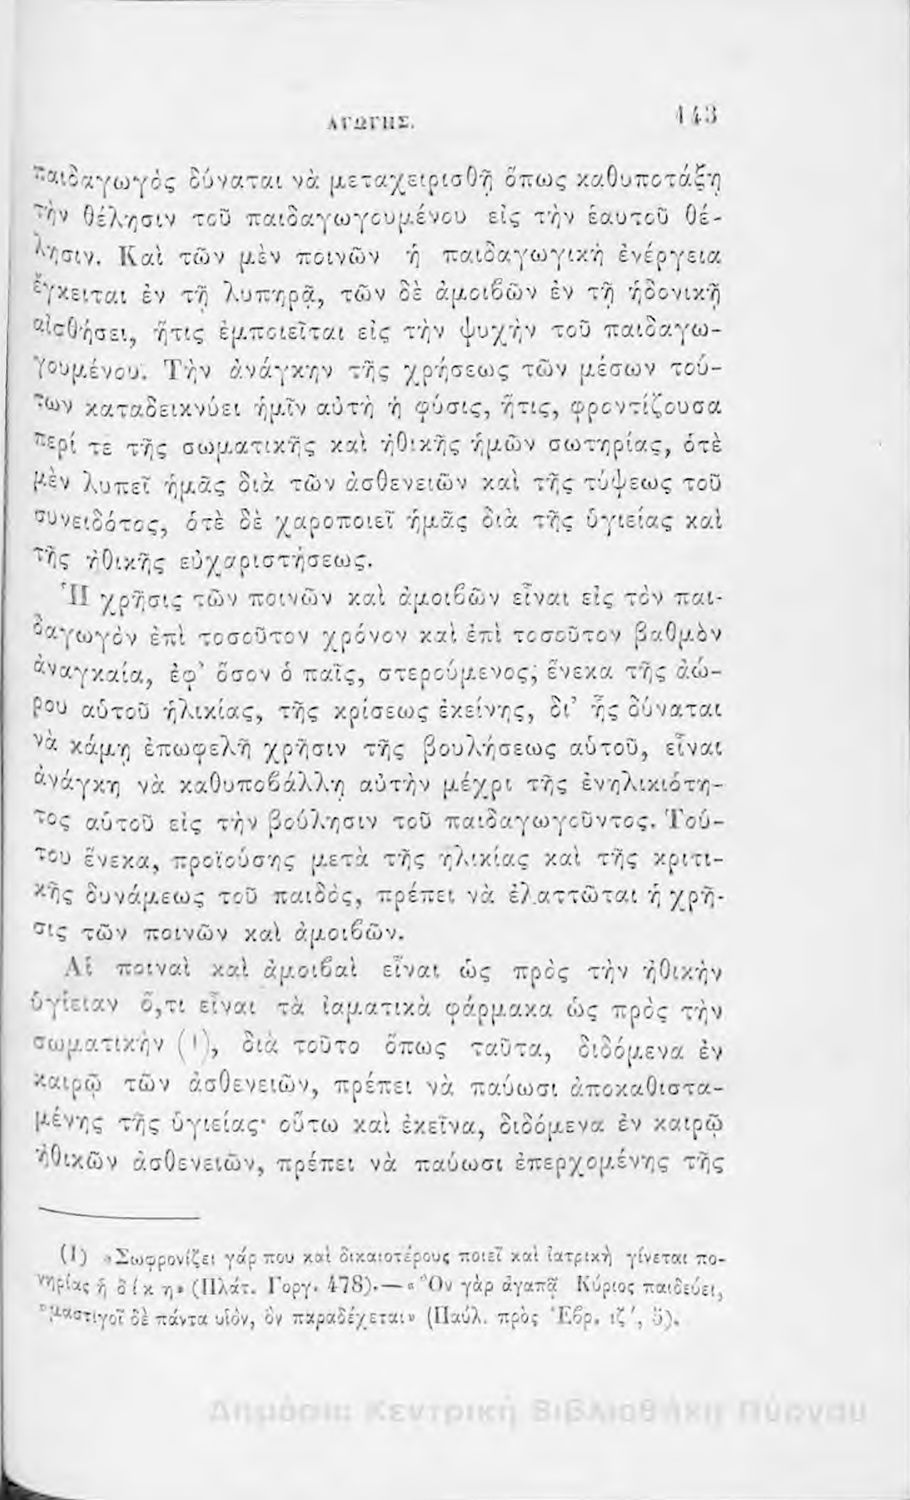 ΑΓΩΓΗΣ. 143
παιδαγωγὸς δύναται νὰ μεταχειρισθῇ ὅπως καθυποτάξῃ
τὴν θέλησιν τοῦ παιδαγωγουμένου εἰς τὴν ἑαυτοῦ θέ-
λησιν. Καὶ τῶν μὲν ποινῶν ἡ παιδαγωγικὴ ἐνέργεια
ἔγκειται ἐν τῇ λυπηρᾷ, τῶν δὲ ἀμοιβῶν ἐν τῇ ἡδονικῇ
αἰσθήσει, ἥτις ἐμποιεῖται εἰς τὴν ψυχὴν τοῦ παιδαγω-
γουμένου. Τὴν ἀνάγκην τῆς χρήσεως τῶν μέσων τού-
των καταδεικνύει ἡμῖν αὐτὴ ἡ φύσις, ἥτις, φροντίζουσα
περί τε τῆς σωματικῆς καὶ ἠθικῆς ἡμῶν σωτηρίας, ὁτὲ
μὲν λυπεῖ ἡμᾶς διὰ τῶν ἀσθενειῶν καὶ τῆς τύψεως τοῦ
συνειδότος, ὁτὲ δὲ χαροποιεῖ ἡμᾶς διὰ τῆς ὑγιείας καὶ
τῆς ἠθικῆς εὐχαριστήσεως.
Ἡ χρῆσις τῶν ποινῶν καὶ ἀμοιβῶν εἶναι εἰς τὸν παι-
δαγωγὸν ἐπὶ τοσοῦτον χρόνον καὶ ἐπὶ τοσοῦτον βαθμὸν
ἀναγκαία, ἐφ' ὅσον ὁ παῖς, στερούμενος, ἕνεκα τῆς ἀώ-
ρου αὑτοῦ ἡλικίας, τῆς κρίσεως ἐκείνης, δι' ἧς δύναται
νὰ κάμῃ ἐπωφελῆ χρῆσιν τῆς βουλήσεως αὑτοῦ, εἶναι
ἀνάγκη νὰ καθυποβάλλῃ αὐτὴν μέχρι τῆς ἐνηλικιότη-
τος αὑτοῦ εἰς τὴν βούλησιν τοῦ παιδαγωγοῦντος. Τού-
του ἕνεκα, προϊούσης μετὰ τῆς ἡλικίας καὶ τῆς κριτι-
κῆς δυνάμεως τοῦ παιδὸς, πρέπει νὰ ἐλαττῶται ἡ χρῆ-
σις τῶν ποινῶν καὶ ἀμοιβῶν.
Αἱ ποιναὶ καὶ ἀμοιβαὶ εἶναι ὡς πρὸς τὴν ἠθικὴν
ὑγίειαν ὅ,τι εἶναι τὰ ἰαματικὰ φάρμακα ὡς πρὸς τὴν
σωματικὴν (1), διὰ τοῦτο ὅπως ταῦτα, διδόμενα ἐν
καιρῷ τῶν ἀσθενειῶν, πρέπει νὰ παύωσι ἀποκαθιστα-
μένης τῆς ὑγιείας· οὕτω καὶ ἐκεῖνα, διδόμενα ἐν καιρῷ
ἠθικῶν ἀσθενειῶν, πρέπει νὰ παύωσι ἐπερχομένης τῆς
(1) «Σωφρονίζει γάρ που καὶ δικαιοτέρους ποιεῖ καὶ ἰατρικὴ γίνεται πο-
νηρίας ἡ δίκη» (Πλάτ. Γοργ. 478).—«Ὃν γὰρ ἀγαπᾷ Κύριος παιδεύει,
μαστιγοῖ δὲ πάντα υἱόν, ὃν παραδέχεται» (Παύλ. πρὸς Ἑβρ. ιζ', 5).
Δημόσια Κεντρική Βιβλιοθήκη Πύργου